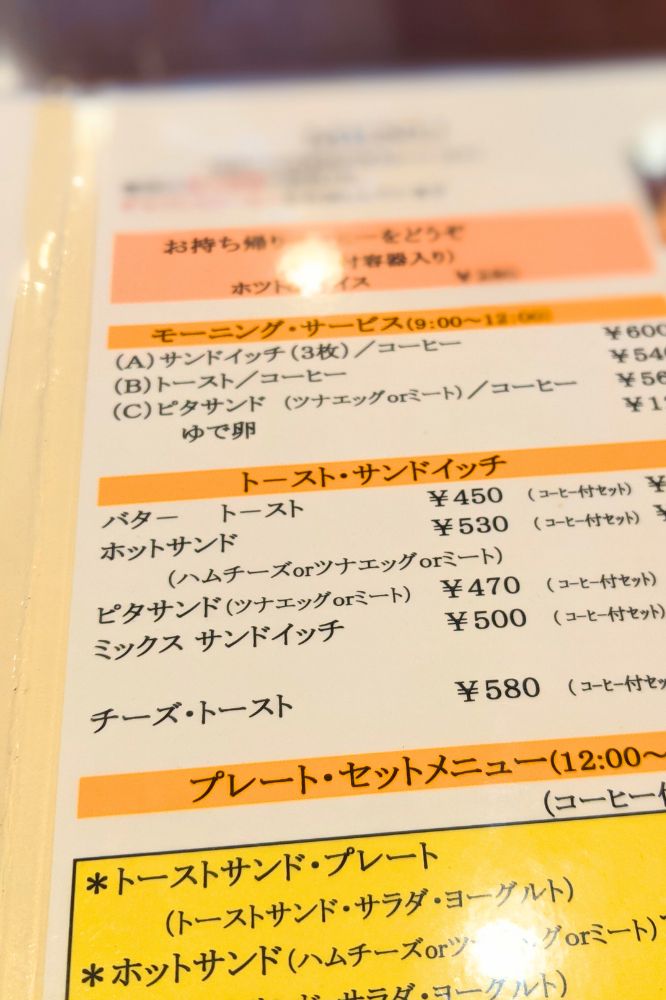 お持ち帰り をどうぞ
付容器入り)
ホット イス
モーニング・サービス(9:00～12:00)
(A)サンドイッチ(3枚)/コーヒー ￥600
(B)トースト/コーヒー ￥54
(C)ピタサンド (ツナエッグorミート)/コーヒー ￥56
ゆで卵 ￥1
トースト・サンドイッチ
バター トースト ￥450 (コーヒー付セット) ￥
ホットサンド ￥530 (コーヒー付セット) ￥
(ハムチーズorツナエッグorミート)
ピタサンド(ツナエッグorミート) ￥470 (コーヒー付セット)
ミックス サンドイッチ ￥500 (コーヒー付セット)
チーズ・トースト ￥580 (コーヒー付セッ
プレート・セットメニュー(12:00～
(コーヒー付
＊トーストサンド・プレート
(トーストサンド・サラダ・ヨーグルト)
＊ホットサンド(ハムチーズorツ グorミート)
ド・サラダ・ヨーグルト)